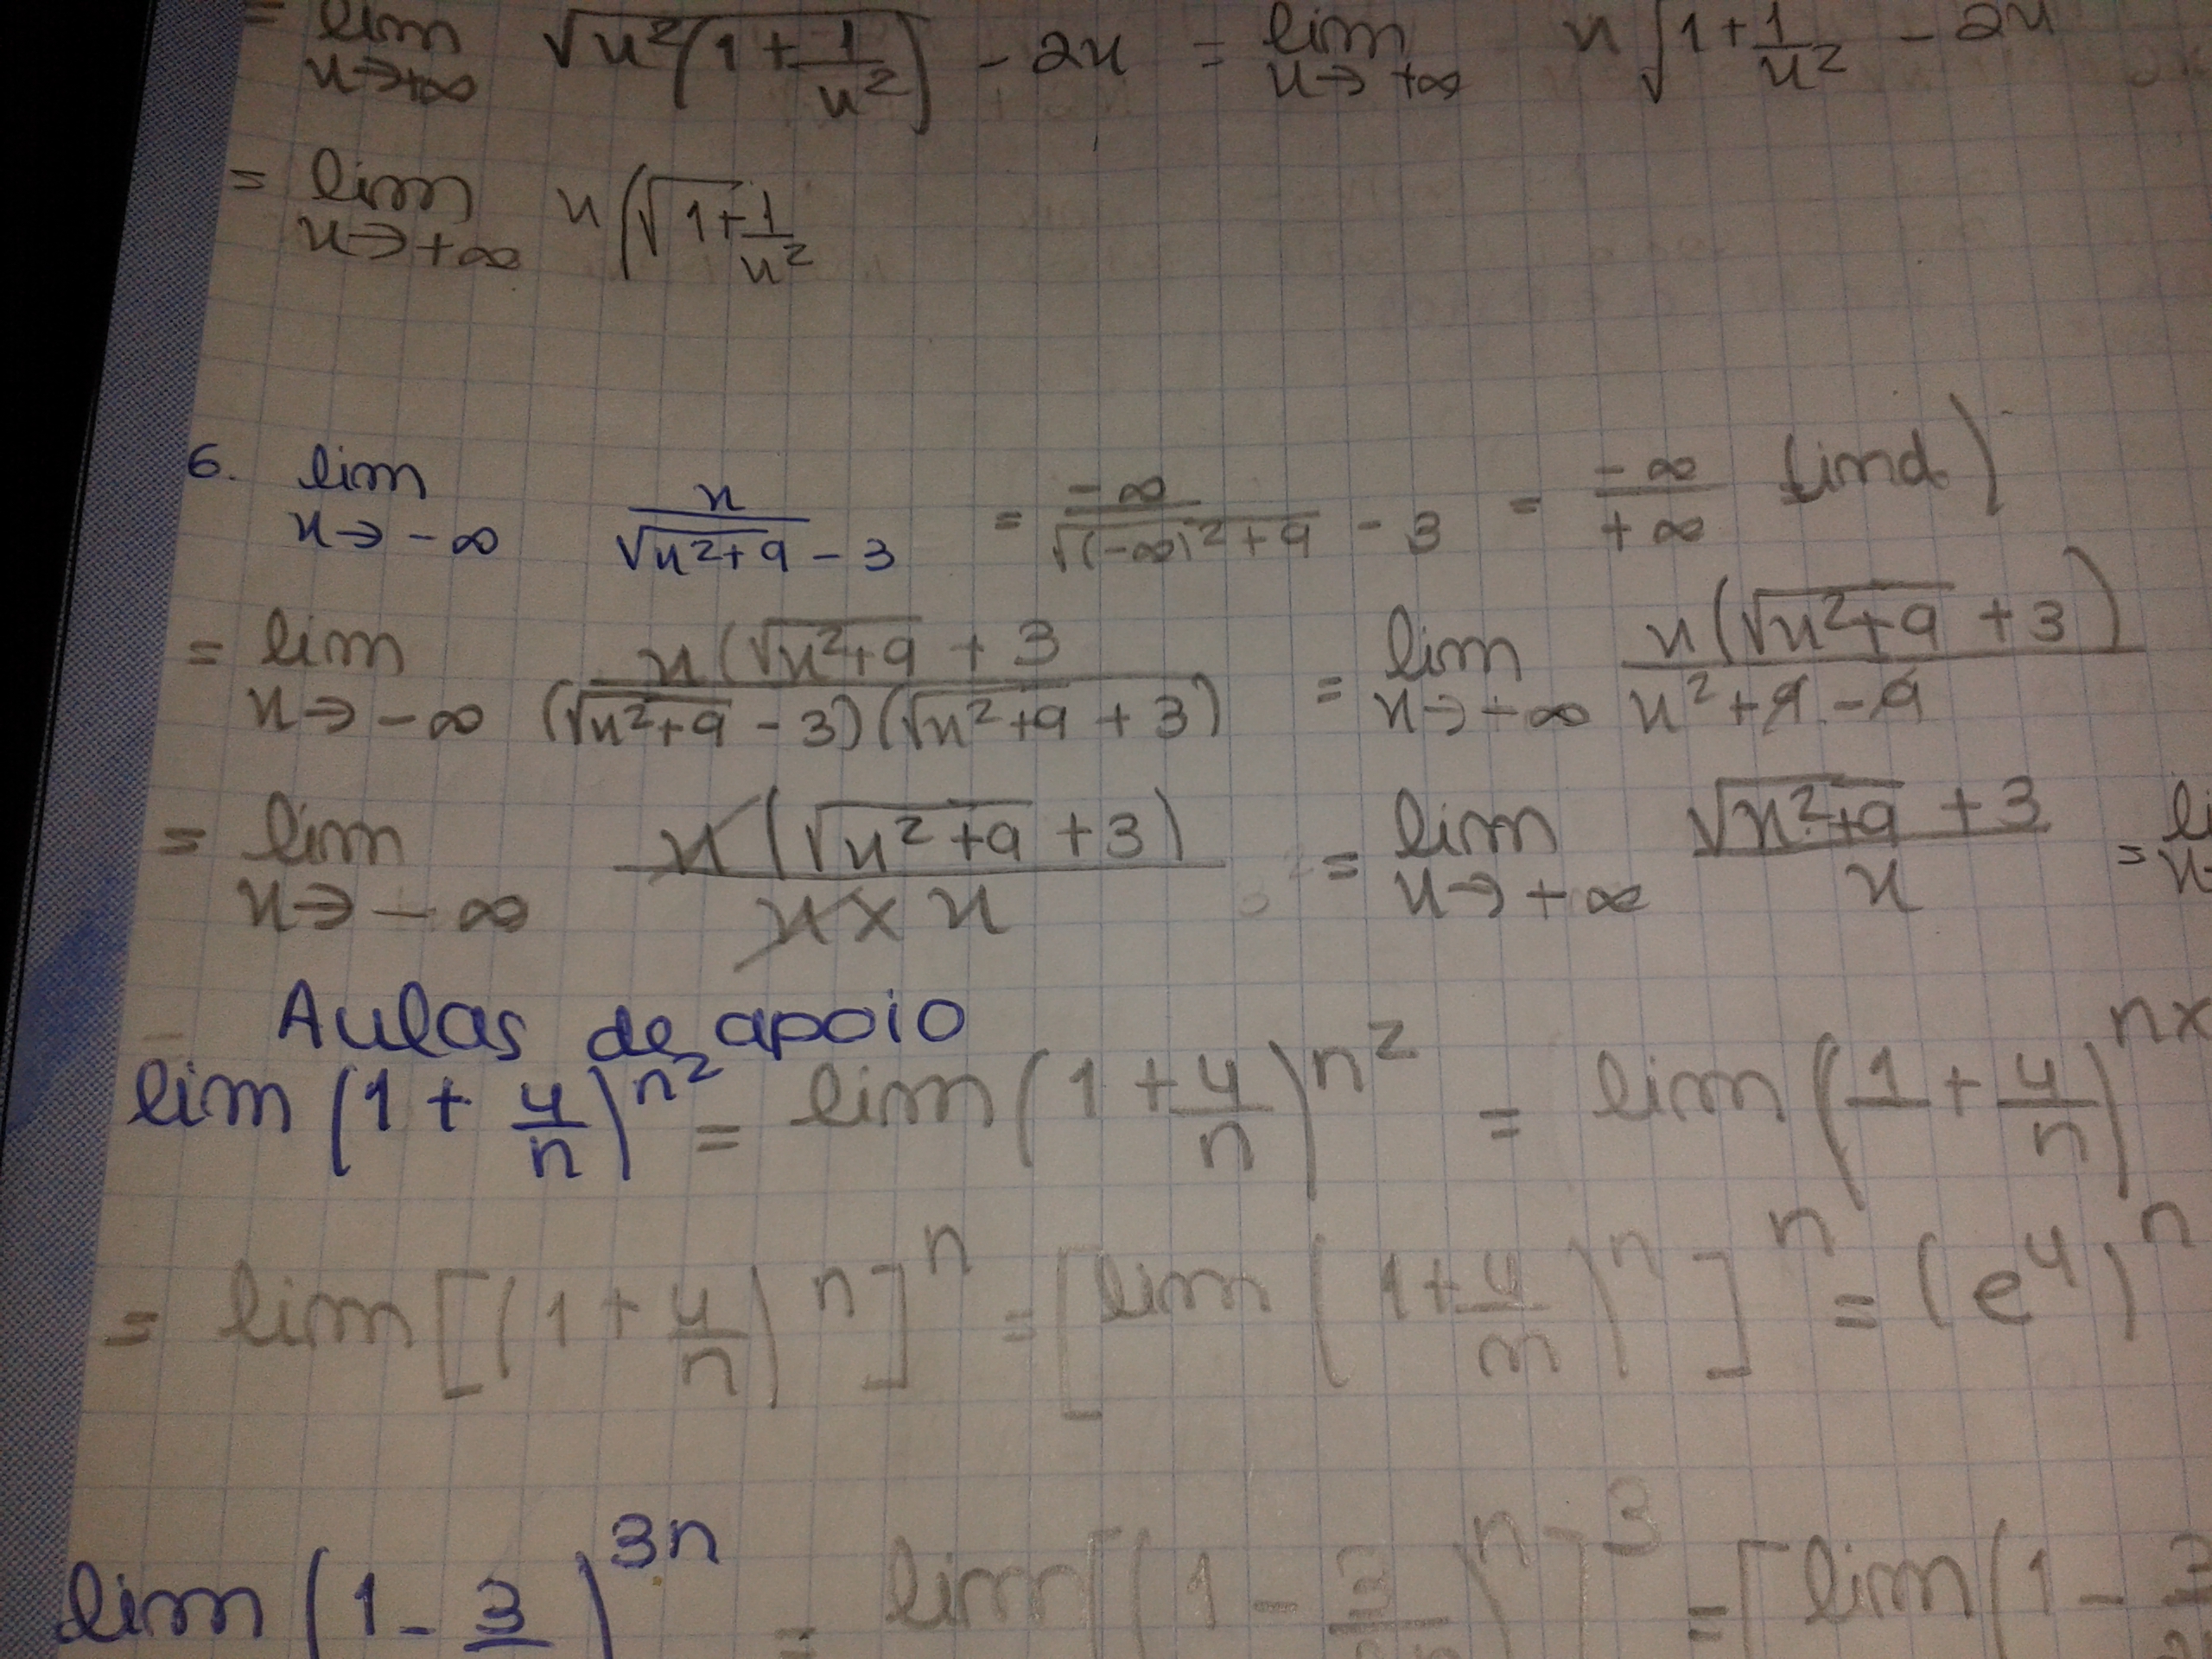 = lim x→+∞ √(x²(1+1/x²)) - 2x = lim x→+∞ x√(1+1/x²) - 2x
= lim x→+∞ x(√(1+1/x²)
6. lim x→-∞ x/(√(x²+9) - 3) = -∞/(√((-∞)²+9) - 3) = -∞/+∞ (ind)
= lim x→-∞ x(√(x²+9) + 3/((√(x²+9) - 3)(√(x²+9) + 3)) = lim x→-∞ x(√(x²+9) + 3)/(x²+9-9)
= lim x→-∞ x(√(x²+9) + 3)/(x×x) = lim x→+∞ (√(x²+9) + 3)/x = li x→
Aulas de apoio
lim (1+4/n)^n² = lim (1+4/n)^n² = lim (1+4/n)^n×
= lim [(1+4/n)^n]^n = [lim (1+4/n)^n]^n = (e^4)^n
lim (1-3/ )^3n = lim [(1-3/ )^n]^3 = [lim (1-